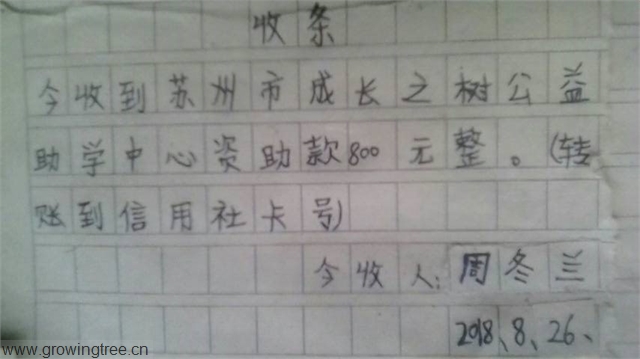 收条
今收到苏州市成长之树公益
助学中心资助款800元整。(转
账到信用社卡号)
今收人:周冬兰
2018、8、26、
www.growingtree.cn